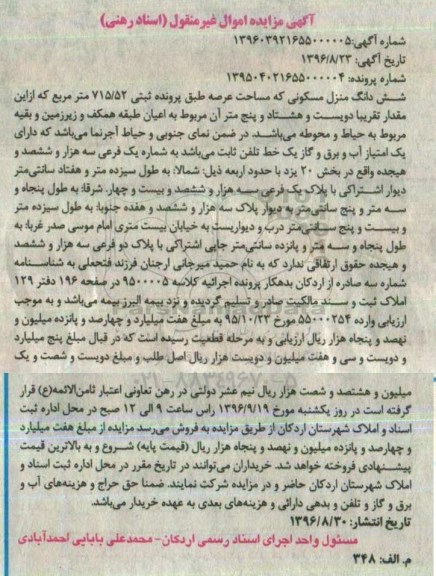 آگهی مزایده اموال غیرمنقول (اسناد رهنی)
شماره آگهی:۱۳۹۶۰۳۹۲۱۶۵۵۰۰۰۰۰۵
تاریخ آگهی: ۱۳۹۶/۸/۲۳
شماره پرونده: ۱۳۹۵۰۴۰۲۱۶۵۵۰۰۰۰۰۴
شش دانگ منزل مسکونی که مساحت عرصه طبق پرونده ثبتی ۷۱۵/۵۲ متر مربع که ازاین
مقدار تقریبا دویست و هشتاد و پنج متر آن مربوط به اعیان طبقه همکف و زیرزمین و بقیه
مربوط به حیاط و محوطه می‌باشد. در ضمن نمای جنوبی و حیاط آجرنما می‌باشد که دارای
یک امتیاز آب و برق و گاز یک خط تلفن ثابت می‌باشد به شماره یک فرعی سه هزار و ششصد و
هیجده واقع در بخش ۲۰ یزد با حدود اربعه ذیل: شمالا: به طول سیزده متر و هفتاد سانتی‌متر
دیوار اشتراکی با پلاک یک فرعی سه هزار و ششصد و بیست و چهار. شرقا: به طول پنجاه و
سه متر و پنج سانتی‌متر به دیوار پلاک سه هزار و ششصد و هفده جنوبا: به طول سیزده متر
و بیست و پنج سانتی‌متر درب و دیواریست به خیابان بیست متری امام موسی صدر غربا: به
طول پنجاه و سه متر و پانزده سانتی‌متر جایی اشتراکی با پلاک دو فرعی سه هزار و ششصد
و هیجده حقوق ارتفاقی ندارد که به نام حمید میرجانی ارجنان فرزند فتحعلی به شناسنامه
شماره سه صادره از اردکان بدهکار پرونده اجرائیه کلاسه ۹۵۰۰۰۰۵ در صفحه ۱۹۶ دفتر ۱۲۹
املاک ثبت و سند مالکیت صادر و تسلیم گردیده و نزد بیمه البرز بیمه می‌باشد و به موجب
ارزیابی وارده ۵۵۰۰۰۲۵۴ مورخ ۹۵/۱۰/۲۳ به مبلغ هفت میلیارد و چهارصد و پانزده میلیون و
نهصد و پنجاه هزار ریال ارزیابی و به مرحله قطعیت رسیده است که در قبال مبلغ پنج میلیارد
و دویست و سی و هفت میلیون و دویست هزار ریال اصل طلب و مبلغ دویست و شصت و یک
میلیون و هشتصد و شصت هزار ریال نیم عشر دولتی در رهن تعاونی اعتبار ثامن‌الائمه(ع) قرار
گرفته است در روز یکشنبه مورخ ۱۳۹۶/۹/۱۹ راس ساعت ۹ الی ۱۲ صبح در محل اداره ثبت
اسناد و املاک شهرستان اردکان از طریق مزایده به فروش می‌رسد مزایده از مبلغ هفت میلیارد
و چهارصد و پانزده میلیون و نهصد و پنجاه هزار ریال (قیمت پایه) شروع و به بالاترین قیمت
پیشنهادی فروخته خواهد شد. خریداران می‌توانند در تاریخ مقرر در محل اداره ثبت اسناد و
املاک شهرستان اردکان حاضر و در مزایده شرکت نمایند. ضمنا حق حراج و هزینه‌های آب و
برق و گاز و تلفن و بدهی دارائی و هزینه‌های بعدی به عهده خریدار می‌باشد.
تاریخ انتشار: ۱۳۹۶/۸/۳۰
مسئول واحد اجرای اسناد رسمی اردکان- محمدعلی بابایی احمدآبادی
م. الف: ۳۴۸